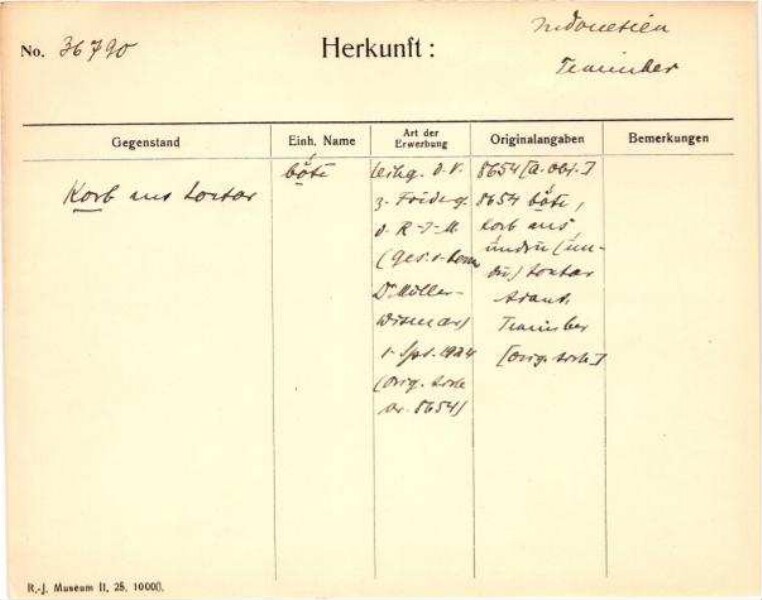 No. 36790 Herkunft: Indonesien
Tanimber
Gegenstand Einh. Name Art der Erwerbung Originalangaben Bemerkungen
Korb aus Lontar
böti
Leihg. d. V.
z. Förderg.
d. R-J-M.
(Ges. v. Herrn
Dr Müller-
Wismar)
1. Spt. 1924
(orig. liste
nr. 8654)
8654 [a. Obj.]
8654 böti,
Korb aus
Lontar
Tanimber
[orig. liste]
R.-J. Museum II, 25, 10000.